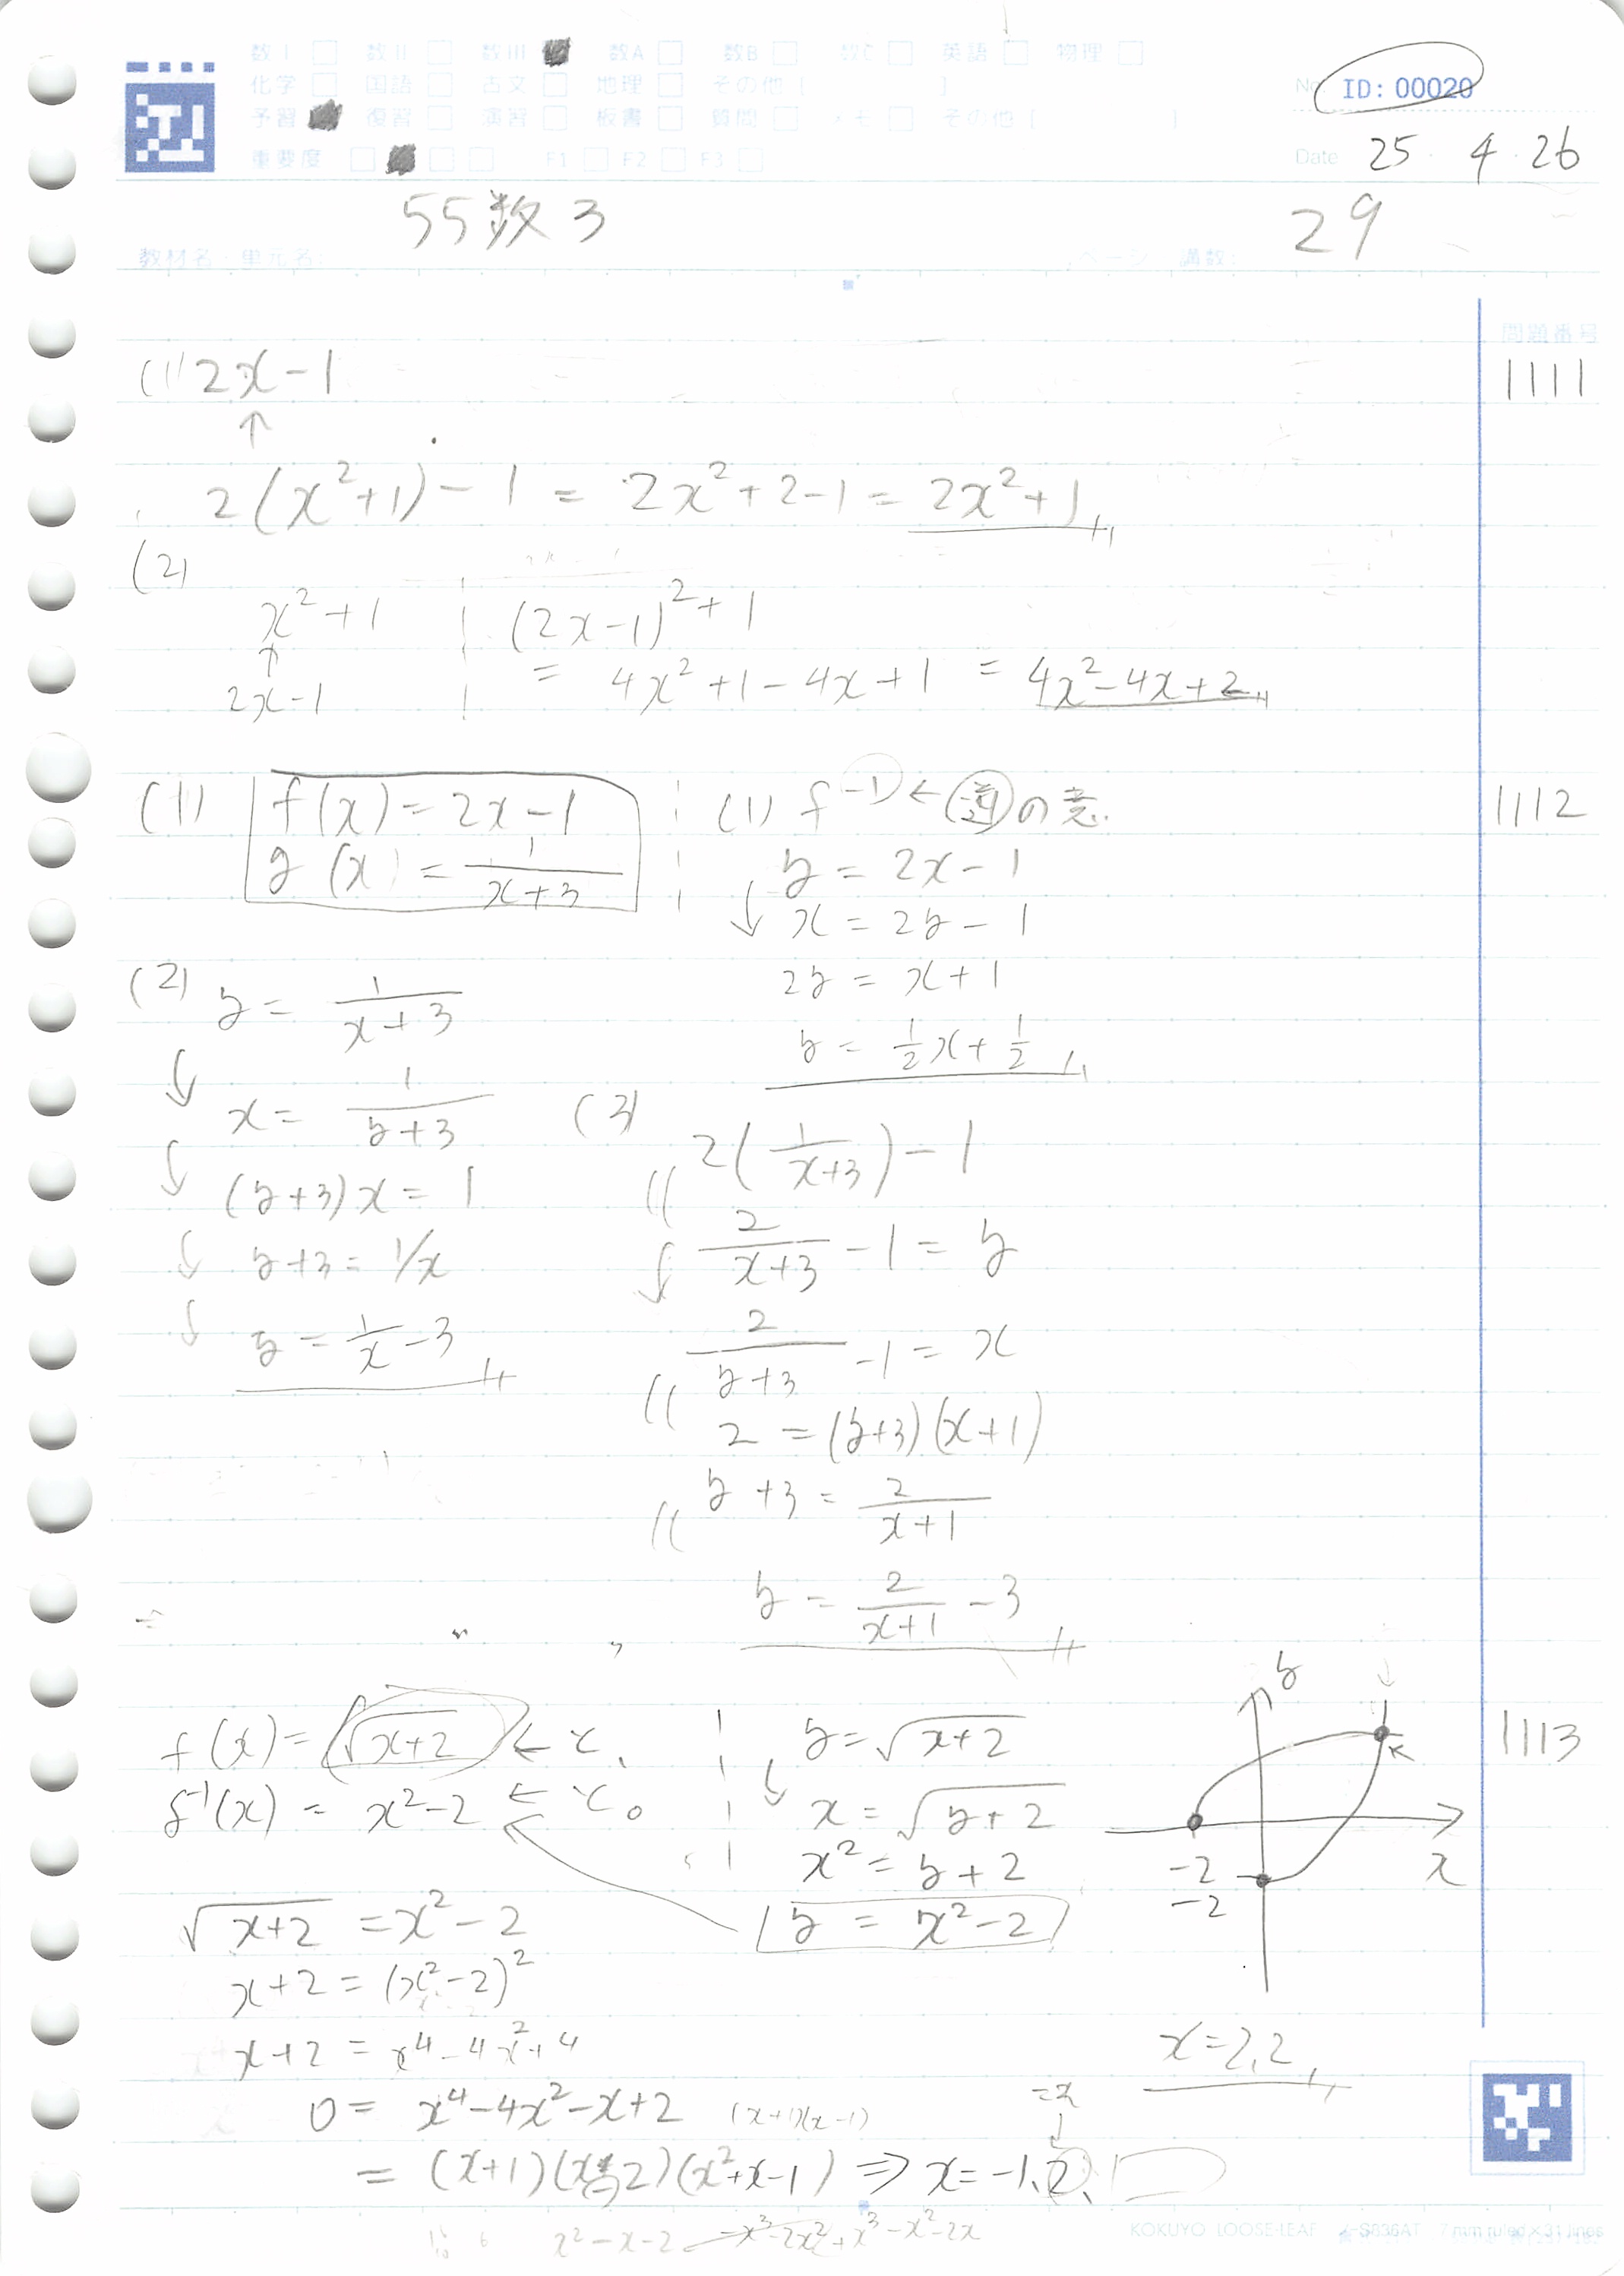 数I 数II 数III 数A 数B 数C 英語 物理
化学 国語 古文 地理 その他 [ ]
予習 復習 演習 板書 質問 メモ その他 [ ]
重要度 F1 F2 F3
ID: 00020
Date 25 4 26
55数3
29
教材名・単元名:
ページ・講数:
問題番号
1111
(1) 2x-1
↑
2(x²+1)-1 = 2x²+2-1 = 2x²+1
(2)
x²+1
↑
2x-1
(2x-1)²+1
= 4x²+1-4x+1 = 4x²-4x+2
1112
(1) f(x)=2x-1
g(x)=1/(x+3)
(1) f⁻¹ ← 逆の意.
y = 2x-1
↓ x = 2y-1
2y = x+1
y = 1/2 x + 1/2
(2) y = 1/(x+3)
↓ x = 1/(y+3)
↓ (y+3)x = 1
↓ y+3 = 1/x
↓ y = 1/x - 3
(3)
2(1/(x+3))-1
2/(x+3) -1 = y
↓ 2/(y+3) -1 = x
2 = (y+3)(x+1)
y+3 = 2/(x+1)
y = 2/(x+1) - 3
1113
f(x)=√(x+2) ← と、
f⁻¹(x) = x²-2 ← と。
y=√(x+2)
↓ x = √(y+2)
x² = y+2
y = x²-2
y
x
-2
-2
√(x+2) = x²-2
x+2 = (x²-2)²
x+2 = x⁴-4x²+4
0 = x⁴-4x²-x+2 (x+1)(x-1)
= (x+1)(x-2)(x²+x-1) ⇒ x=-1,2,
x=2,2
x²-x-2 -x³-2x²+x³-x²-2x
KOKUYO LOOSE-LEAF ノ-S836AT 7 mm ruled×31 lines